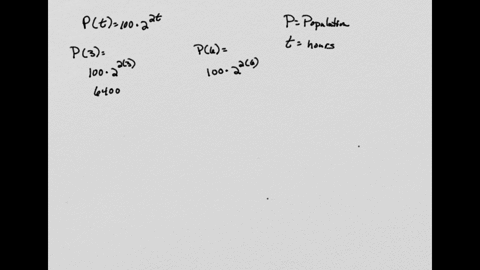 P(t)=100·2^{2t}
P=Population
t=hours
P(3)=
100·2^{2(3)}
6400
P(6)=
100·2^{2(6)}